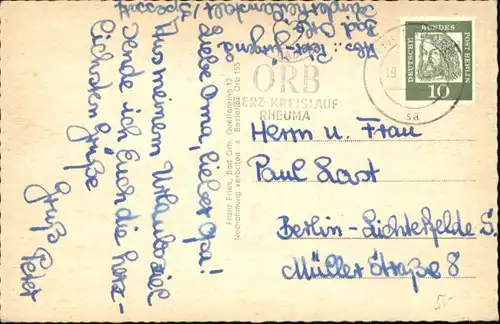 Abs.: Peter
Bad Orb
Kinderheilanstalt
Liebe Oma, lieber Opa!
Aus meinem Urlaubsziel
sende ich Euch die herz-
lichsten Grüße
Grüße Peter
Franz Fries, Bad Orb, Quellenring 12
Nachnahmung verboten Bestellnr. Orb 155
ORB
HERZ-KREISLAUF
RHEUMA
19
sa
DEUTSCHE BUNDES POST BERLIN
10
Herrn u. Frau
Paul Last
Berlin-Lichterfelde S.
Müller Straße 8
5.-